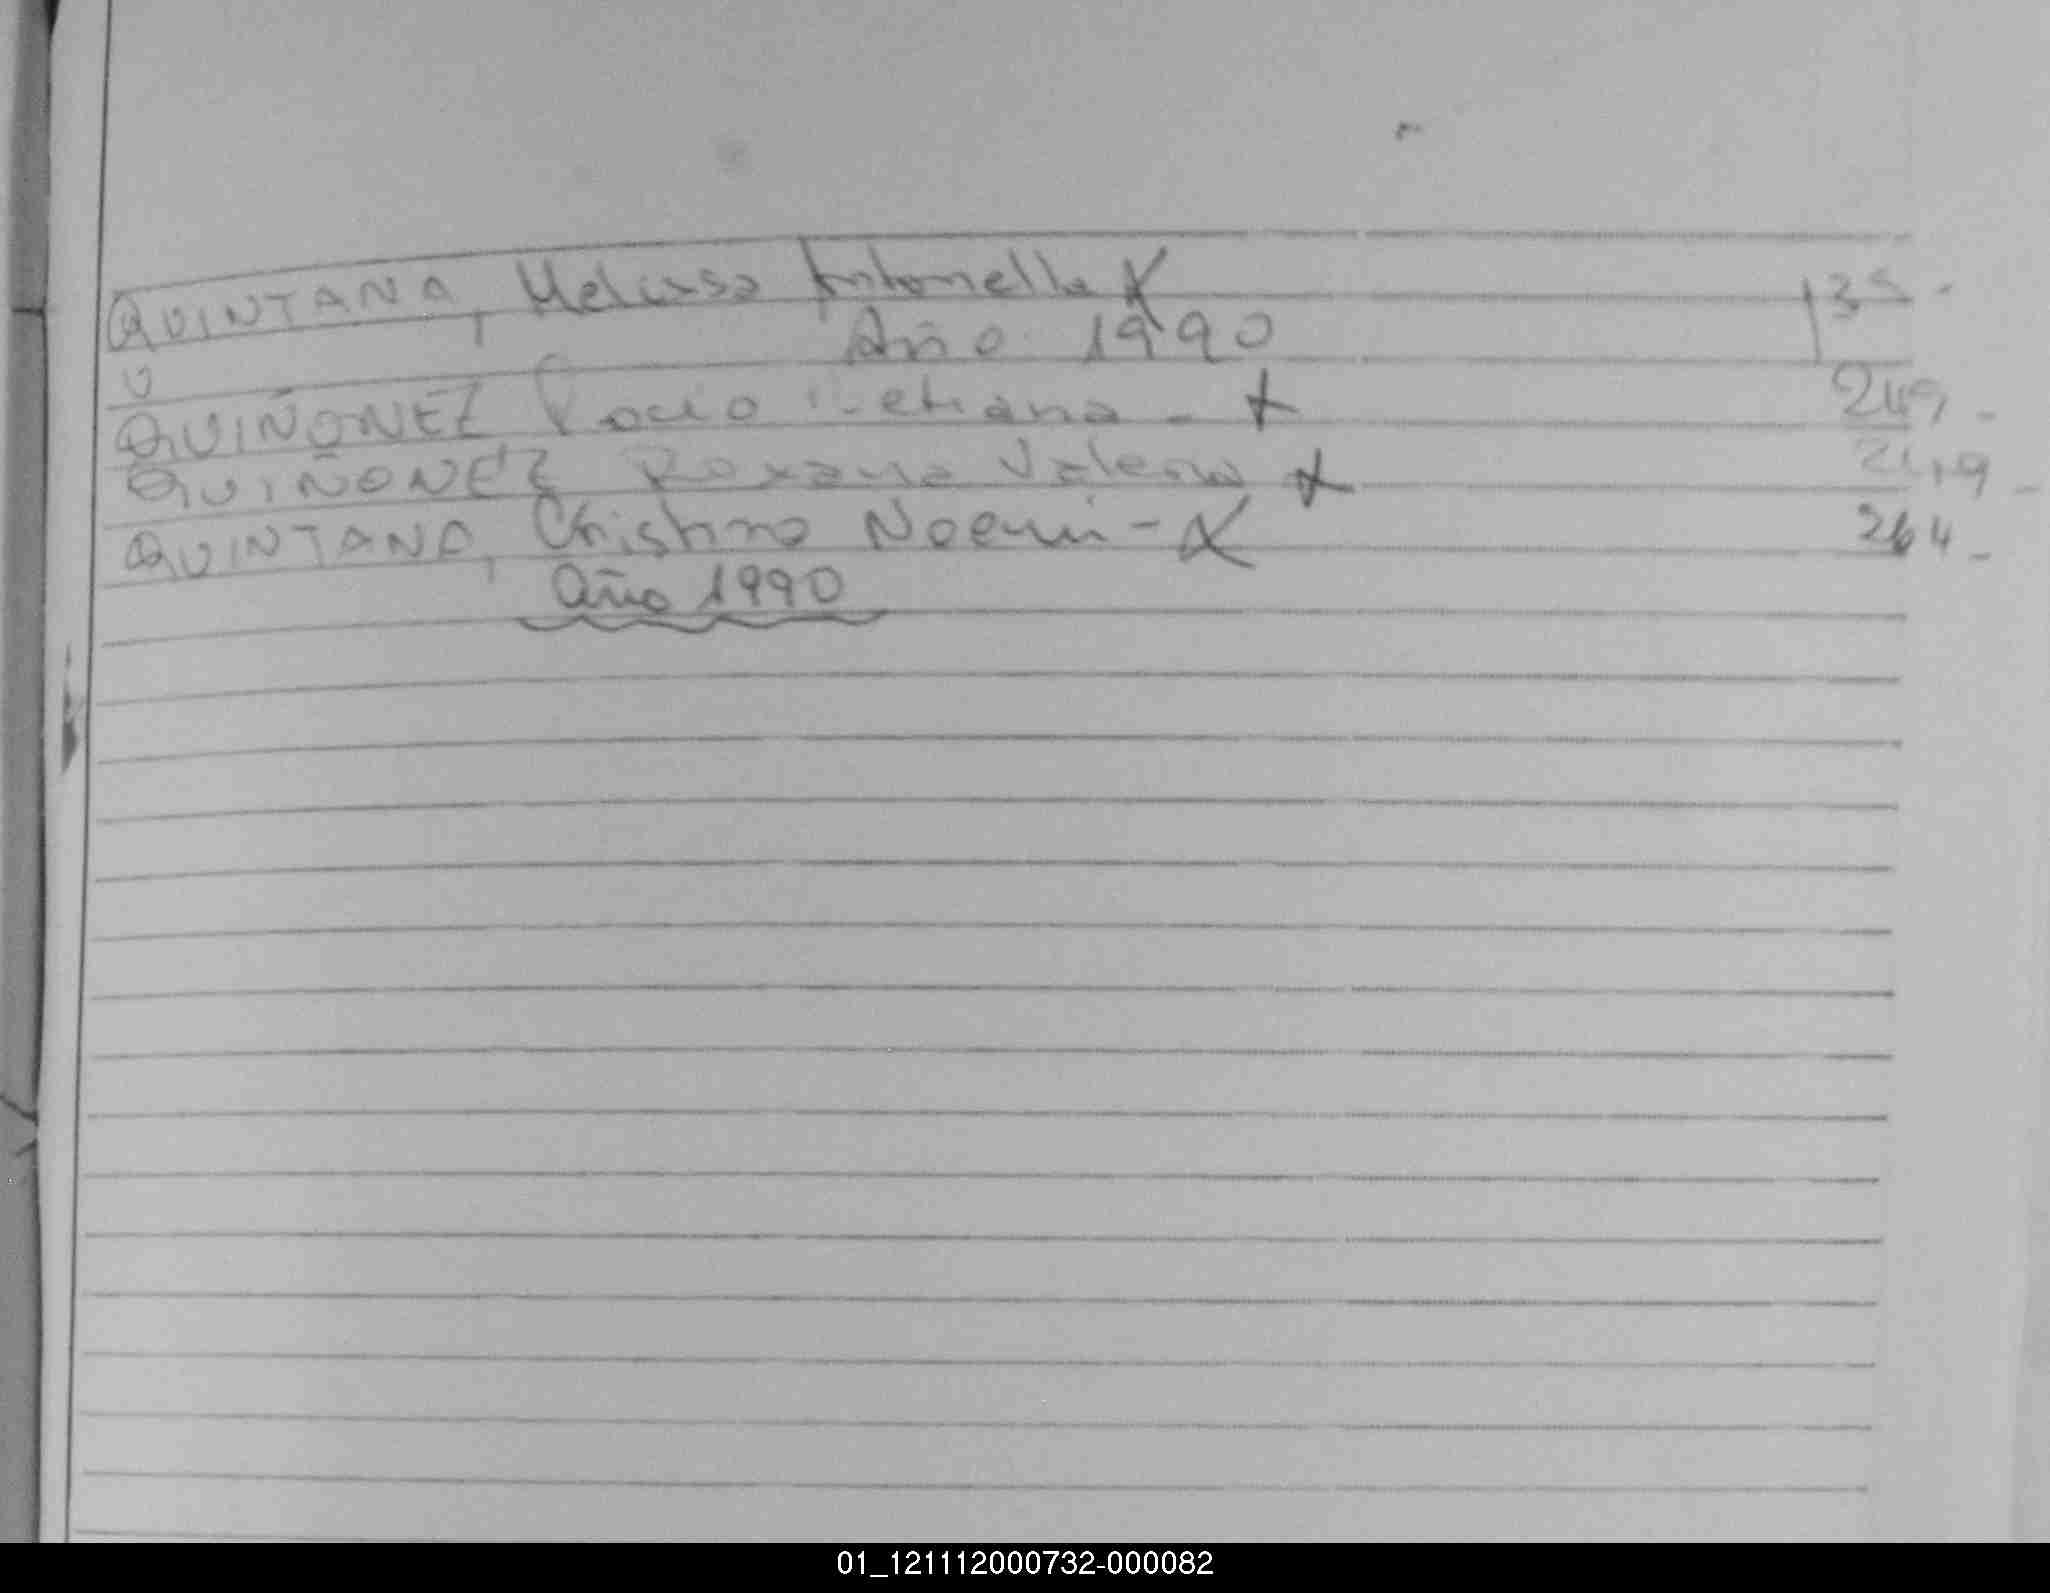 QUINTANA, Melissa Antonella X 35 -
Año 1990
QUIÑONEZ Rocio - + 249 -
QUIÑONEZ Roxana Valeria X 249 -
QUINTANA, Christina Noemi - X 264 -
Año 1990
01_121112000732-000082